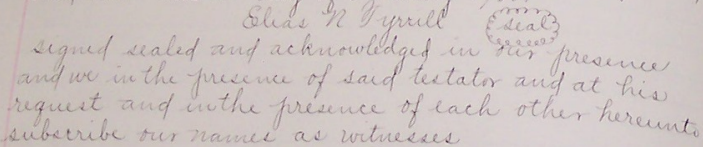 Elias N Tyrrill (seal)
signed sealed and acknowledged in our presence
and we in the presence of said testator and at his
request and in the presence of each other hereunto
subscribe our names as witnesses